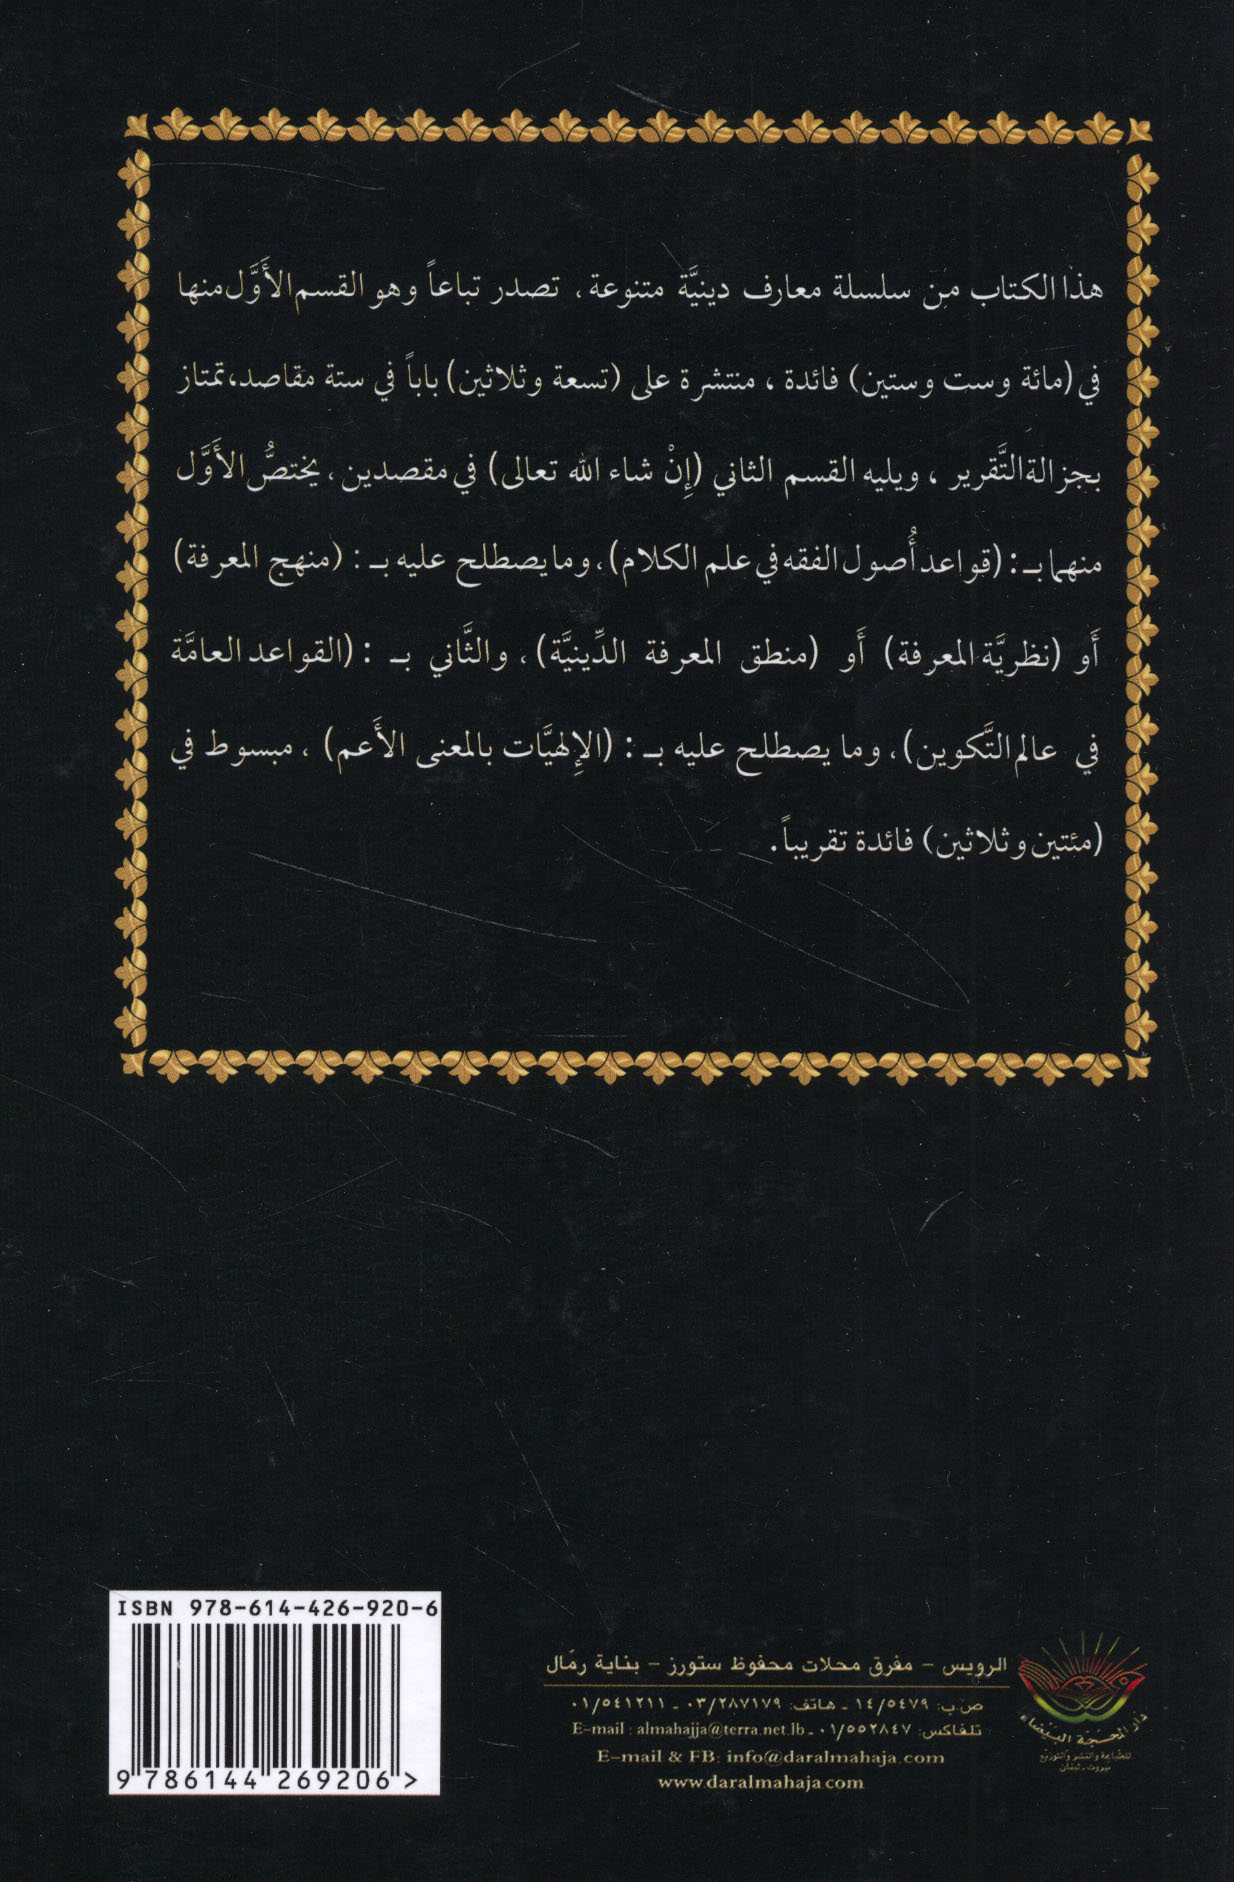 هذا الكتاب من سلسلة معارف دينيَّة متنوعة، تصدر تباعاً وهو القسم الأَوَّل منها
في (مائة وست وستين) فائدة، منتشرة على (تسعة وثلاثين) باباً في ستة مقاصد، تمتاز
بجزالة التَّقرير، ويليه القسم الثاني (إِنْ شاء الله تعالى) في مقصدين، يختصُّ الأَوَّل
منهما بـ: (قواعد أُصول الفقه في علم الكلام)، وما يصطلح عليه بـ: (منهج المعرفة)
أَو (نظريَّة المعرفة) أَو (منطق المعرفة الدِّينيَّة)، والثَّاني بـ: (القواعد العامَّة
في عالم التَّكوين)، وما يصطلح عليه بـ: (الإِلهيَّات بالمعنى الأَعم)، مبسوط في
(مئتين وثلاثين) فائدة تقريباً.
ISBN 978-614-426-920-6
9 786144 269206 >
الرويس - مفرق محلات محفوظ ستورز - بناية رمّال
ص.ب: ١٤/٥٤٧٩ - هاتف: ٠٣/٢٨٧١٧٩ - ٠١/٥٤١٢١١
تلفاكس: ٠١/٥٥٢٨٤٧ - E-mail : almahajja@terra.net.lb
E-mail & FB: info@daralmahaja.com
www.daralmahaja.com
دار المحجّة البيضاء
للطباعة والنشر والتوزيع
بيروت - لبنان